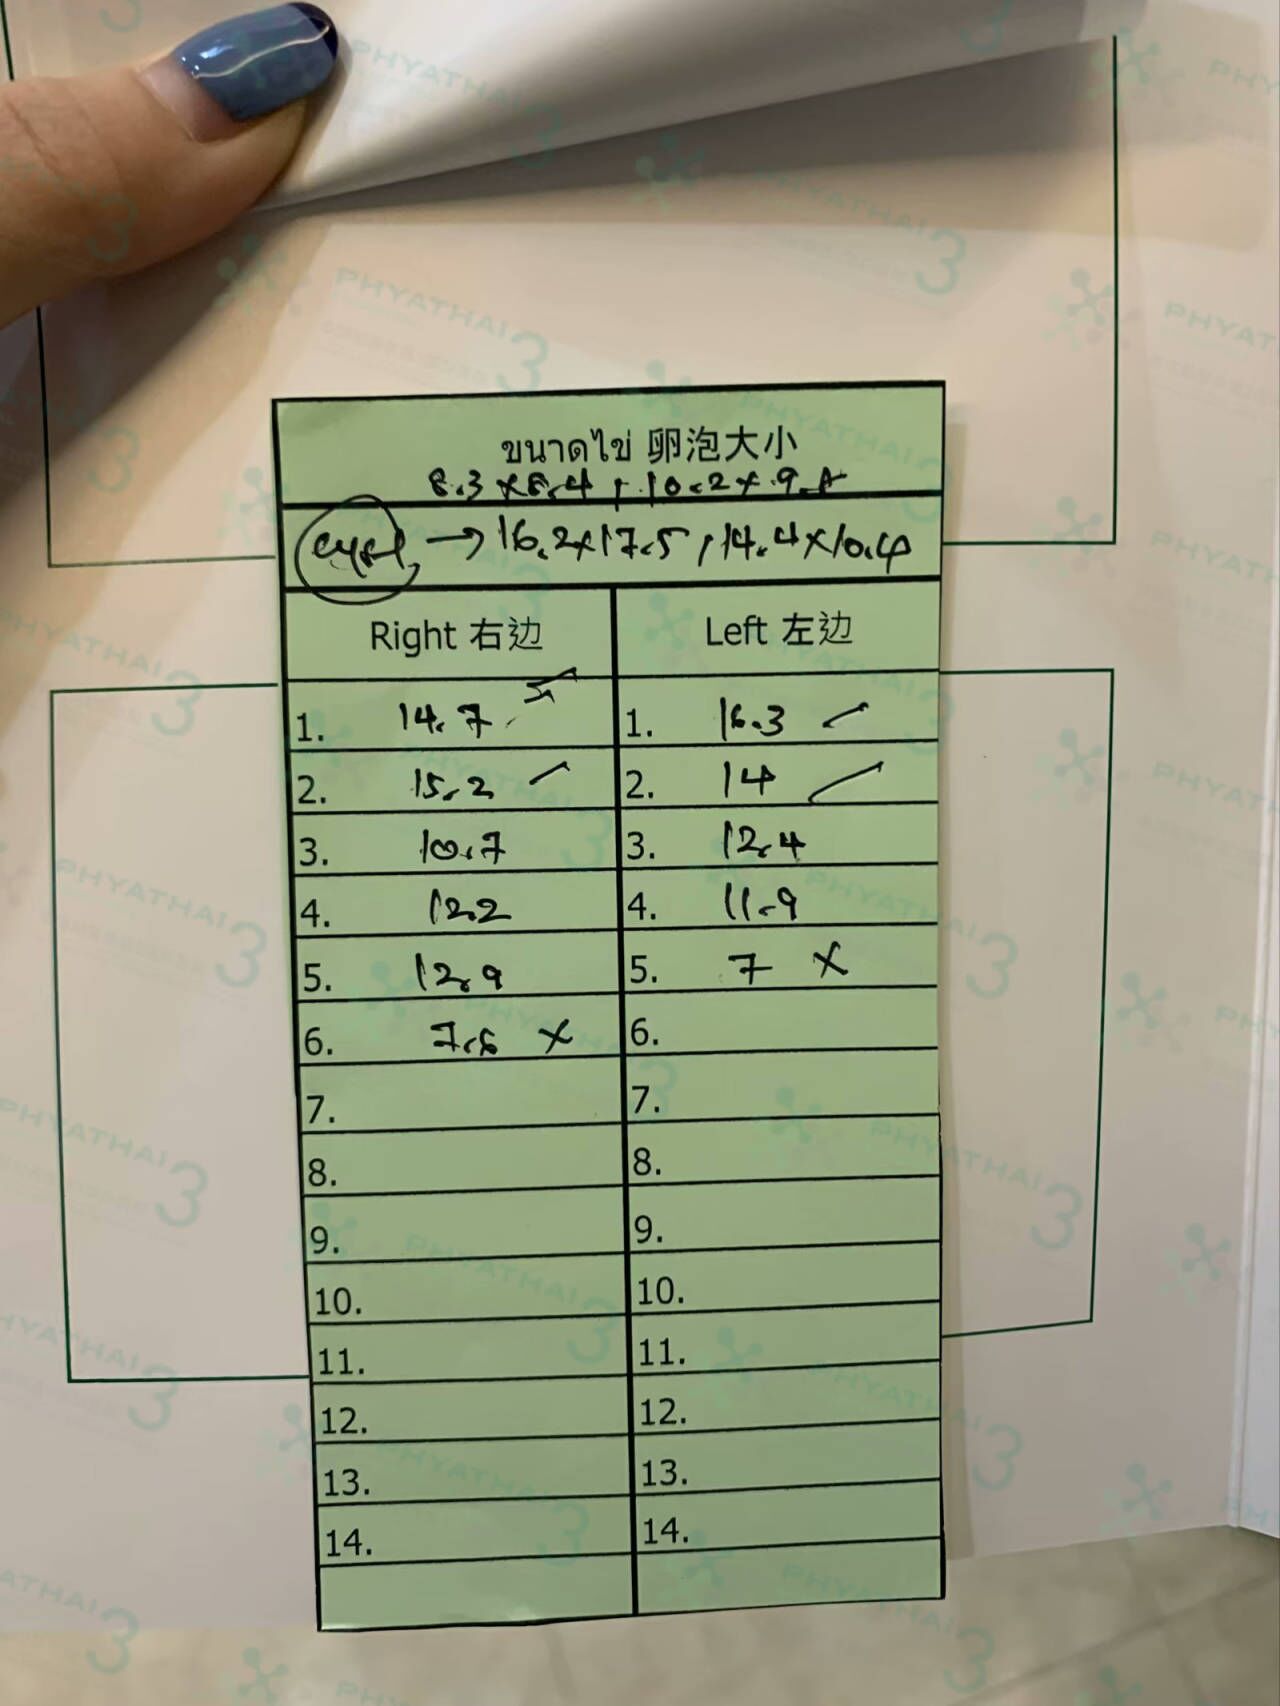 ขนาดไข่ 卵泡大小
8.3 x 8.4 , 10.2 x 9.
cyst → 16.2x17.5 , 14.4x10.4
Right 右边 Left 左边
1. 14.7 1. 16.3 ✓
2. 15.2 ✓ 2. 14 ✓
3. 10.7 3. 12.4
4. 12.2 4. 11.9
5. 12.9 5. 7 x
6. 7.6 x 6.
7. 7.
8. 8.
9. 9.
10. 10.
11. 11.
12. 12.
13. 13.
14. 14.
PHYATHAI 3